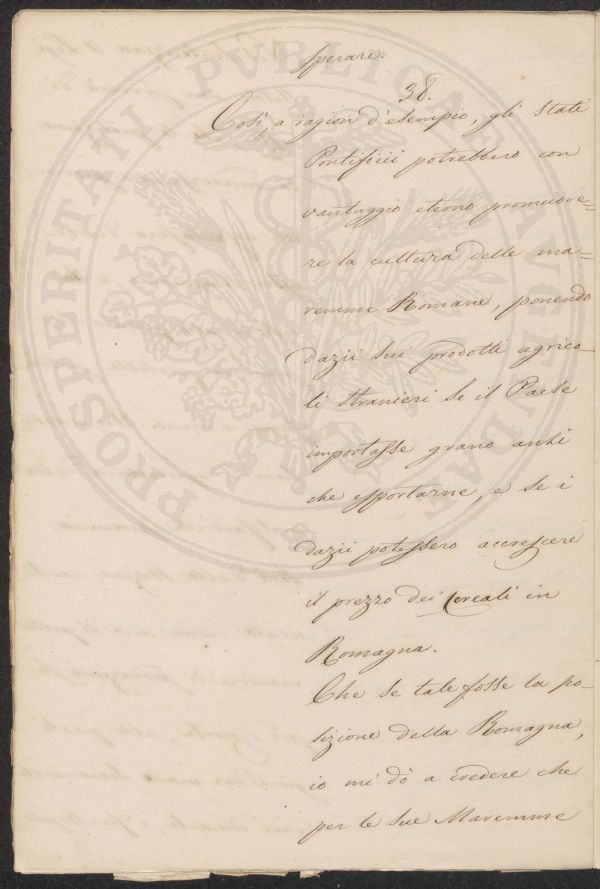 sperare.
38.
Così, a ragion d'esempio, gli Stati
Pontificii potrebbero con
vantaggio eterno promuove=
re la cultura delle ma=
remme Romane, ponendo
dazii sui prodotti agrico-
li stranieri se il Paese
importasse grano anzi
che esportarne, e se i
dazii potessero accrescere
il prezzo dei Cereali in
Romagna.
Che se tale fosse la po-
sizione della Romagna,
io mi dò a credere che
per le sue Maremme
PROSPERITATI PUBLICAE AUGENDAE